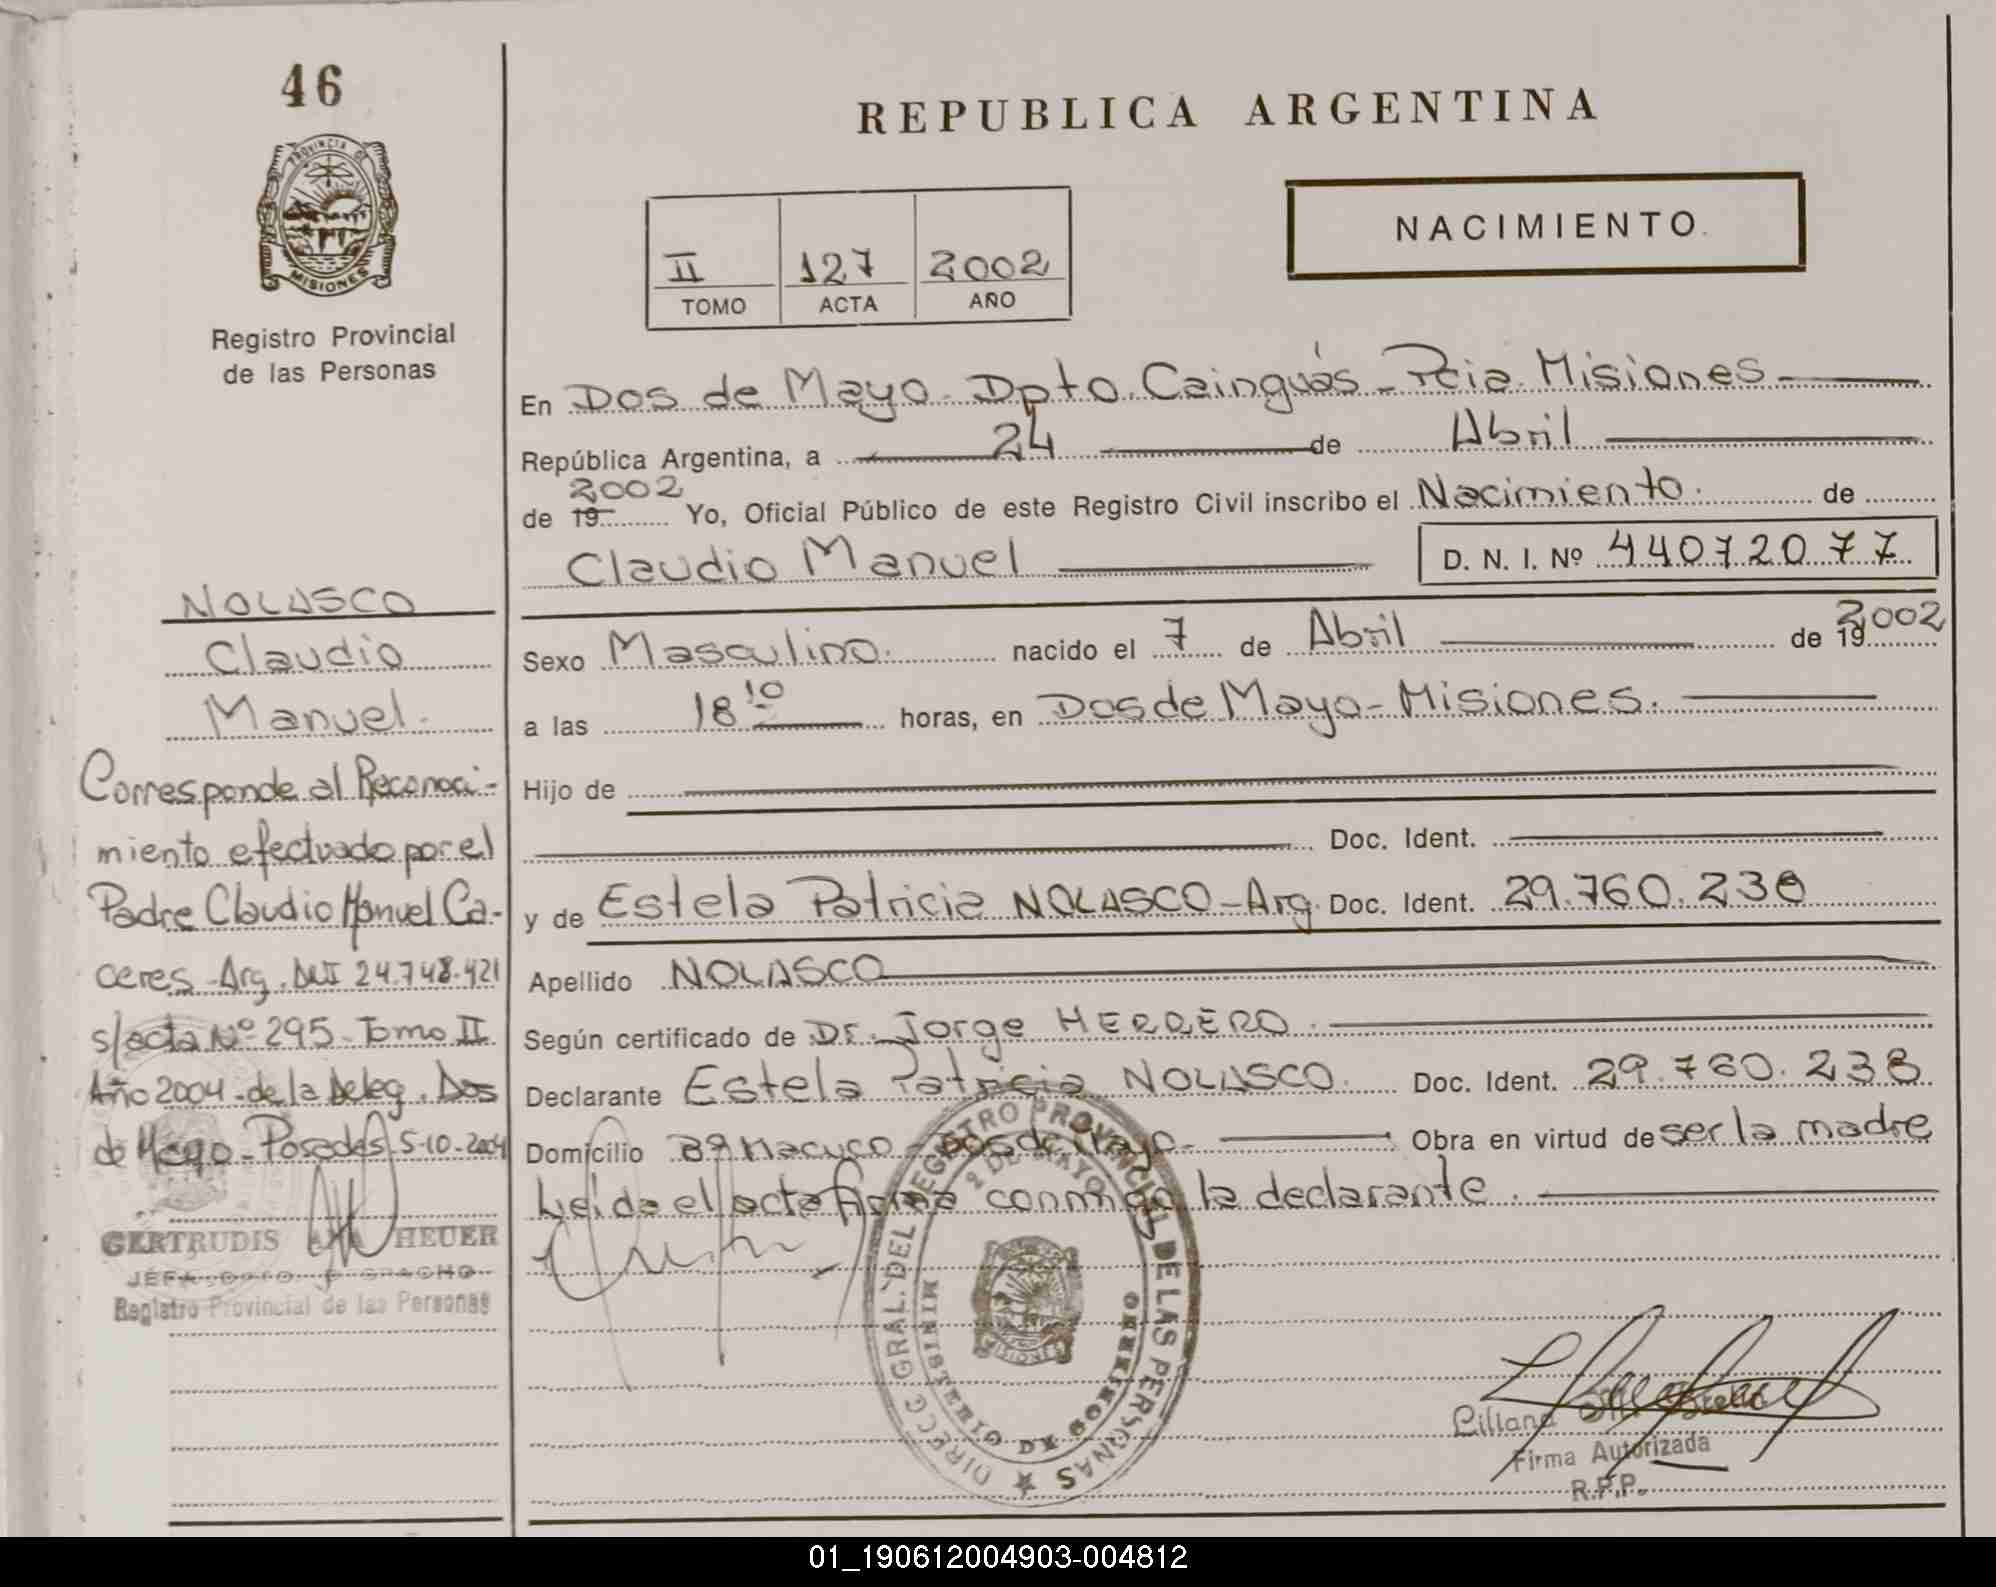 46
PROVINCIA DE
MISIONES
Registro Provincial
de las Personas
NOLASCO
Claudio
Manuel.
Corresponde al Reconoci-
miento efectuado por el
Padre Claudio Manuel Ca-
ceres - Arg. DNI 24.748.421
s/acta Nº 295 - Tomo II
Año 2004 - de la Deleg. Dos
de Mayo - Posadas 5-10-2004
GERTRUDIS HEUER
JEFA DPTO
Registro Provincial de las Personas
REPUBLICA ARGENTINA
NACIMIENTO
II 127 2002
TOMO ACTA AÑO
En Dos de Mayo - Dpto. Cainguás - Pcia. Misiones
República Argentina, a 24 de Abril
2002
de 19 Yo, Oficial Público de este Registro Civil inscribo el Nacimiento. de
Claudio Manuel D. N. I. Nº 44072077
Sexo Masculino. nacido el 7 de Abril de 19 2002
a las 18 10 horas, en Dos de Mayo - Misiones.
Hijo de
Doc. Ident.
y de Estela Patricia NOLASCO - Arg. Doc. Ident. 29.760.238
Apellido NOLASCO
Según certificado de Dr. Jorge HERRERO.
Declarante Estela Patricia NOLASCO. Doc. Ident. 29.760.238
Domicilio Bº Macuco - Dos de Mayo - Obra en virtud de ser la madre
Leída el acta firma conmigo la declarante.
DIRECC GRAL. DEL REGISTRO PROVINCIAL DE LAS PERSONAS
2 DE MAYO
MINISTERIO DE GOBIERNO
Liliana
Firma Autorizada
R.P.P.
01_190612004903-004812